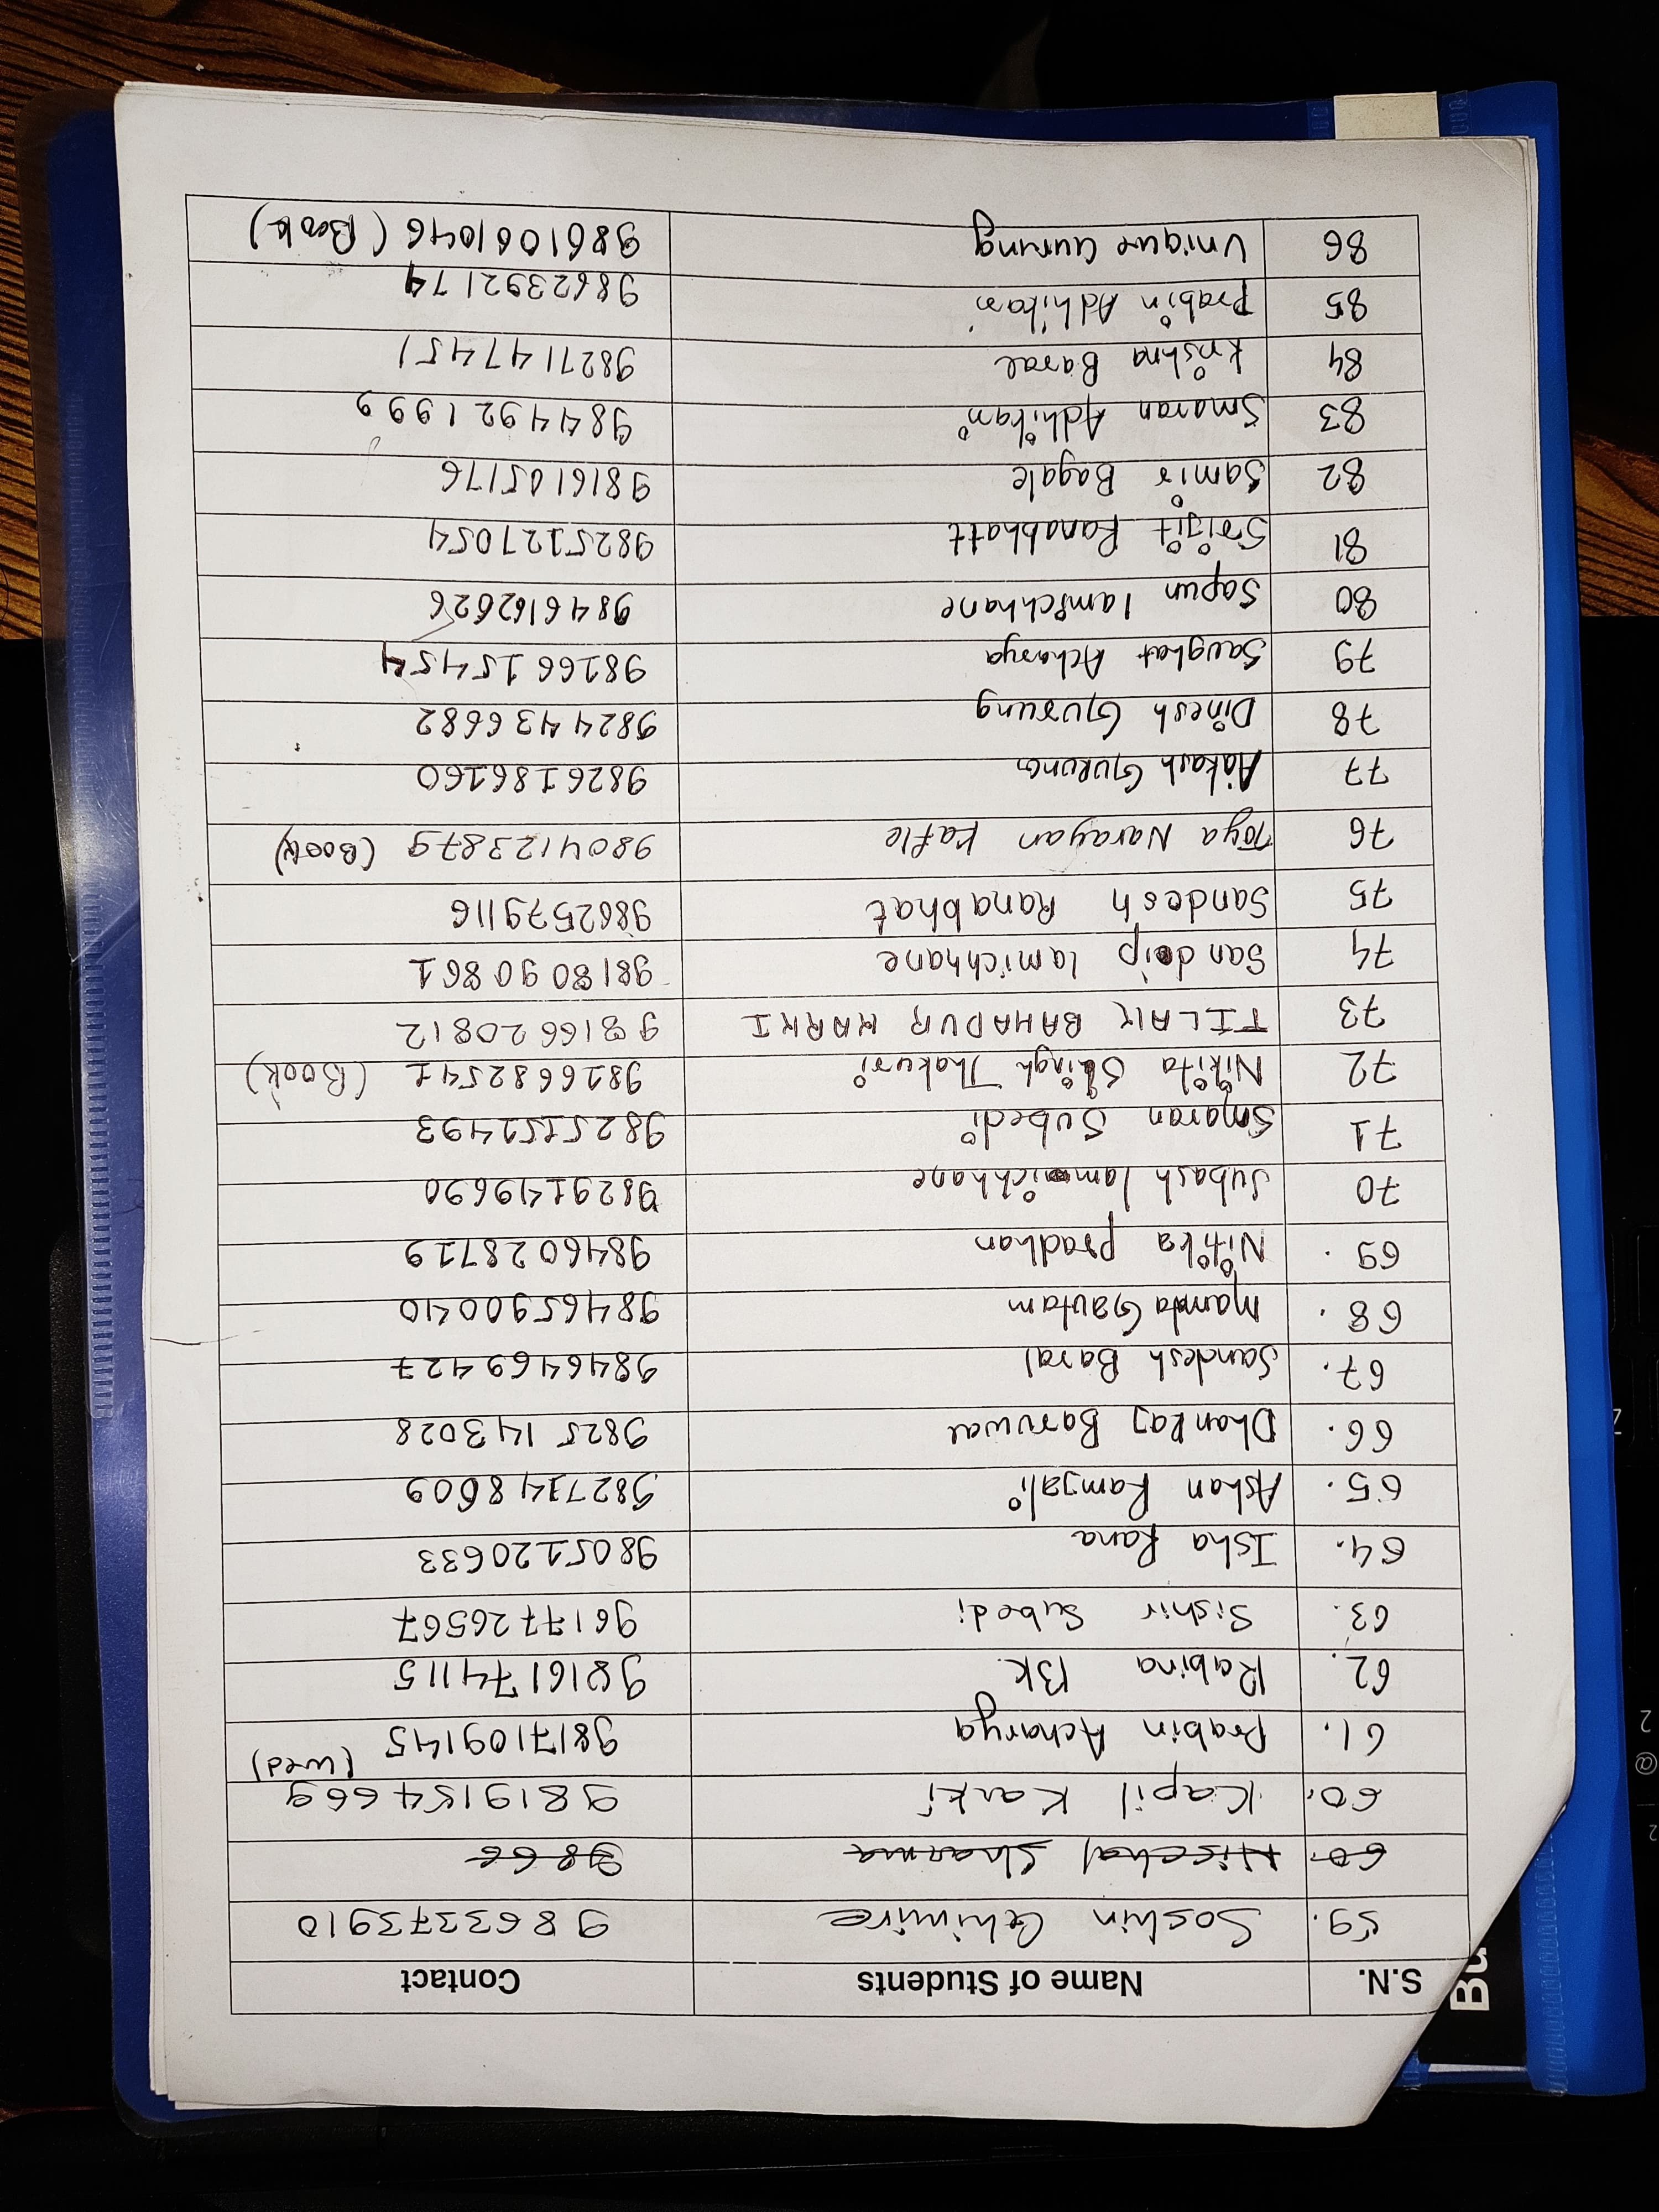 Bu
S.N. Name of Students Contact
59. Soshin Ghimire 9863373910
60. Nischal Sharma 9866
60. Kapil Karki 9819154669
(wed)
61. Prabin Acharya 9817109145
62. Rabina BK. 9816174115
63. Sishir Subedi 9617726567
64. Isha Rana 9805120633
65. Ashan Ramjali 9827148609
66. Dhan Raj Baruwal 9825143028
67. Sandesh Baral 9846469427
68. Mamta Gautam 9846590040
69. Nitika pradhan 9846028719
70 Subash lamichhane 9829149690
71 Smaran Subedi 9825151493
72 Nikita Singh Thakuri 9816682541 (Book)
73 TILAK BAHADUR KARKI 9816620812
74 Sandip lamichhane 9818090861
75 Sandesh Ranabhat 9862579116
76 Toya Narayan Kafle 9804123879 (Book)
77 Aakash GURUNG 9826186160
78 Dinesh Gurung 9824436682
79 Saughat Acharya 9816615454
80 Sapun lamichhane 9846162626
81 Srijit Ranabhatt 9825127054
82 Samir Bagale 9816105176
83 Smaran Adhikari 9844921999
84 Krishna Baral 9827147451
85 Prabin Adhikari 9862392174
86 Unique Gurung 9861061046 (Book)
2
@
2
Z